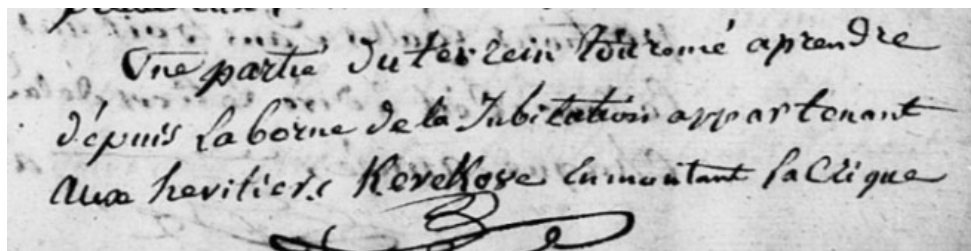 Une partie du terrein touromé aprendre
dépuis la borne de la Jubilation appartenant
aux heritiers Kerekove en montant la Crique